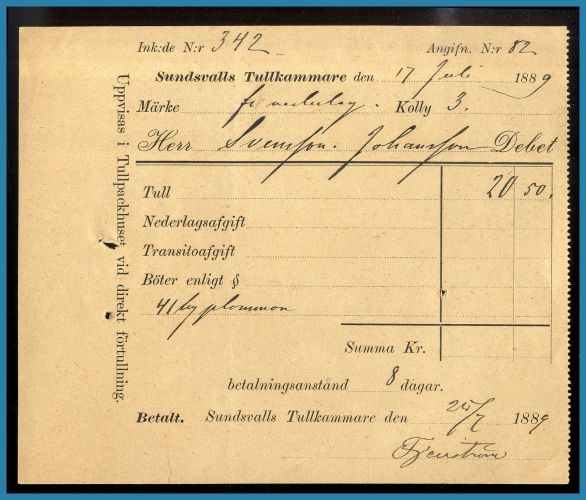 Ink:de N:r 342
Angifn. N:r 82
Sundsvalls Tullkammare den 17 Juli 1889
Märke fr nederlag. Kolly 3.
Herr Svensson. Johansson Debet
Tull 20 50.
Nederlagsafgift
Transitoafgift
Böter enligt §
41 kg plommon
Summa Kr.
betalningsanstånd 8 dagar.
Betalt. Sundsvalls Tullkammare den 25/7 1889
Uppvisas i Tullpackhuset vid direkt förtullning.